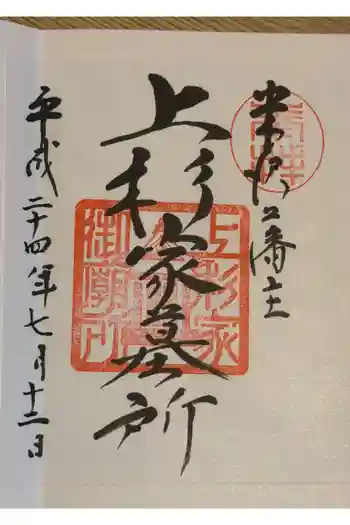 米沢藩主
上杉家墓所
上杉家
御廟所
平成二十四年七月十二日